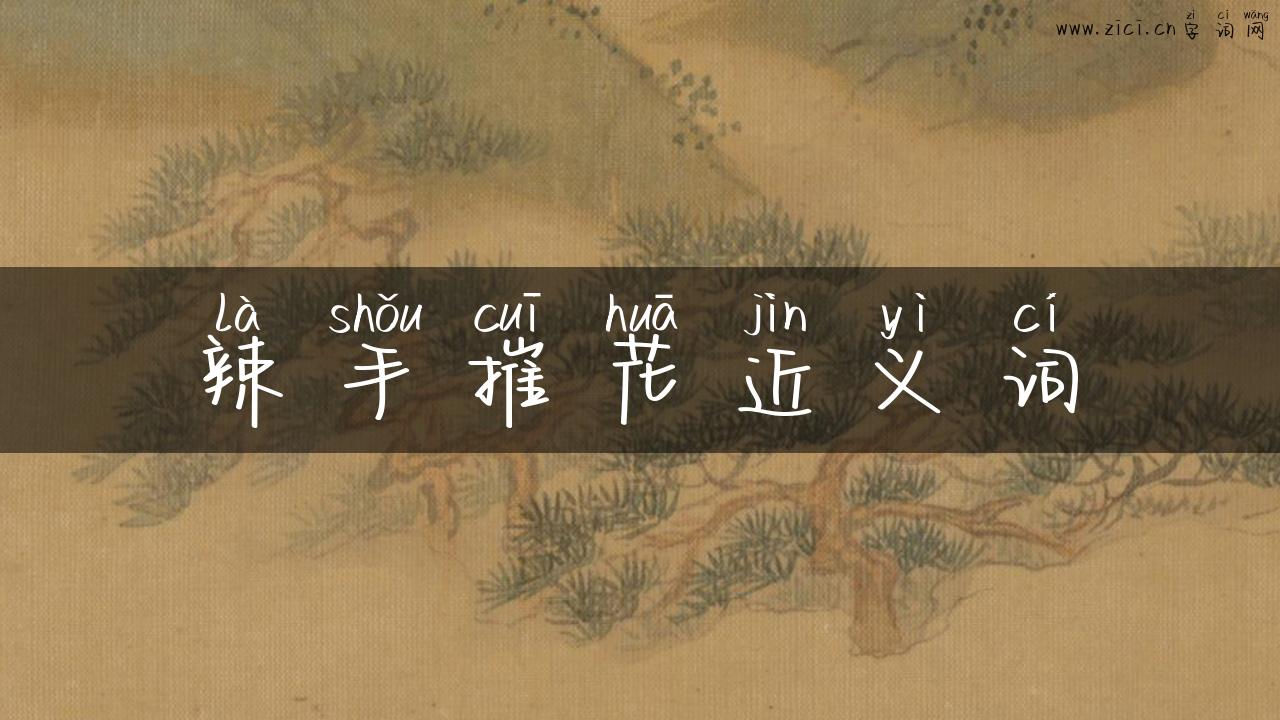 zì cí wǎng
www.zici.cn 字词网
là shǒu cuī huā jìn yì cí
辣手摧花近义词